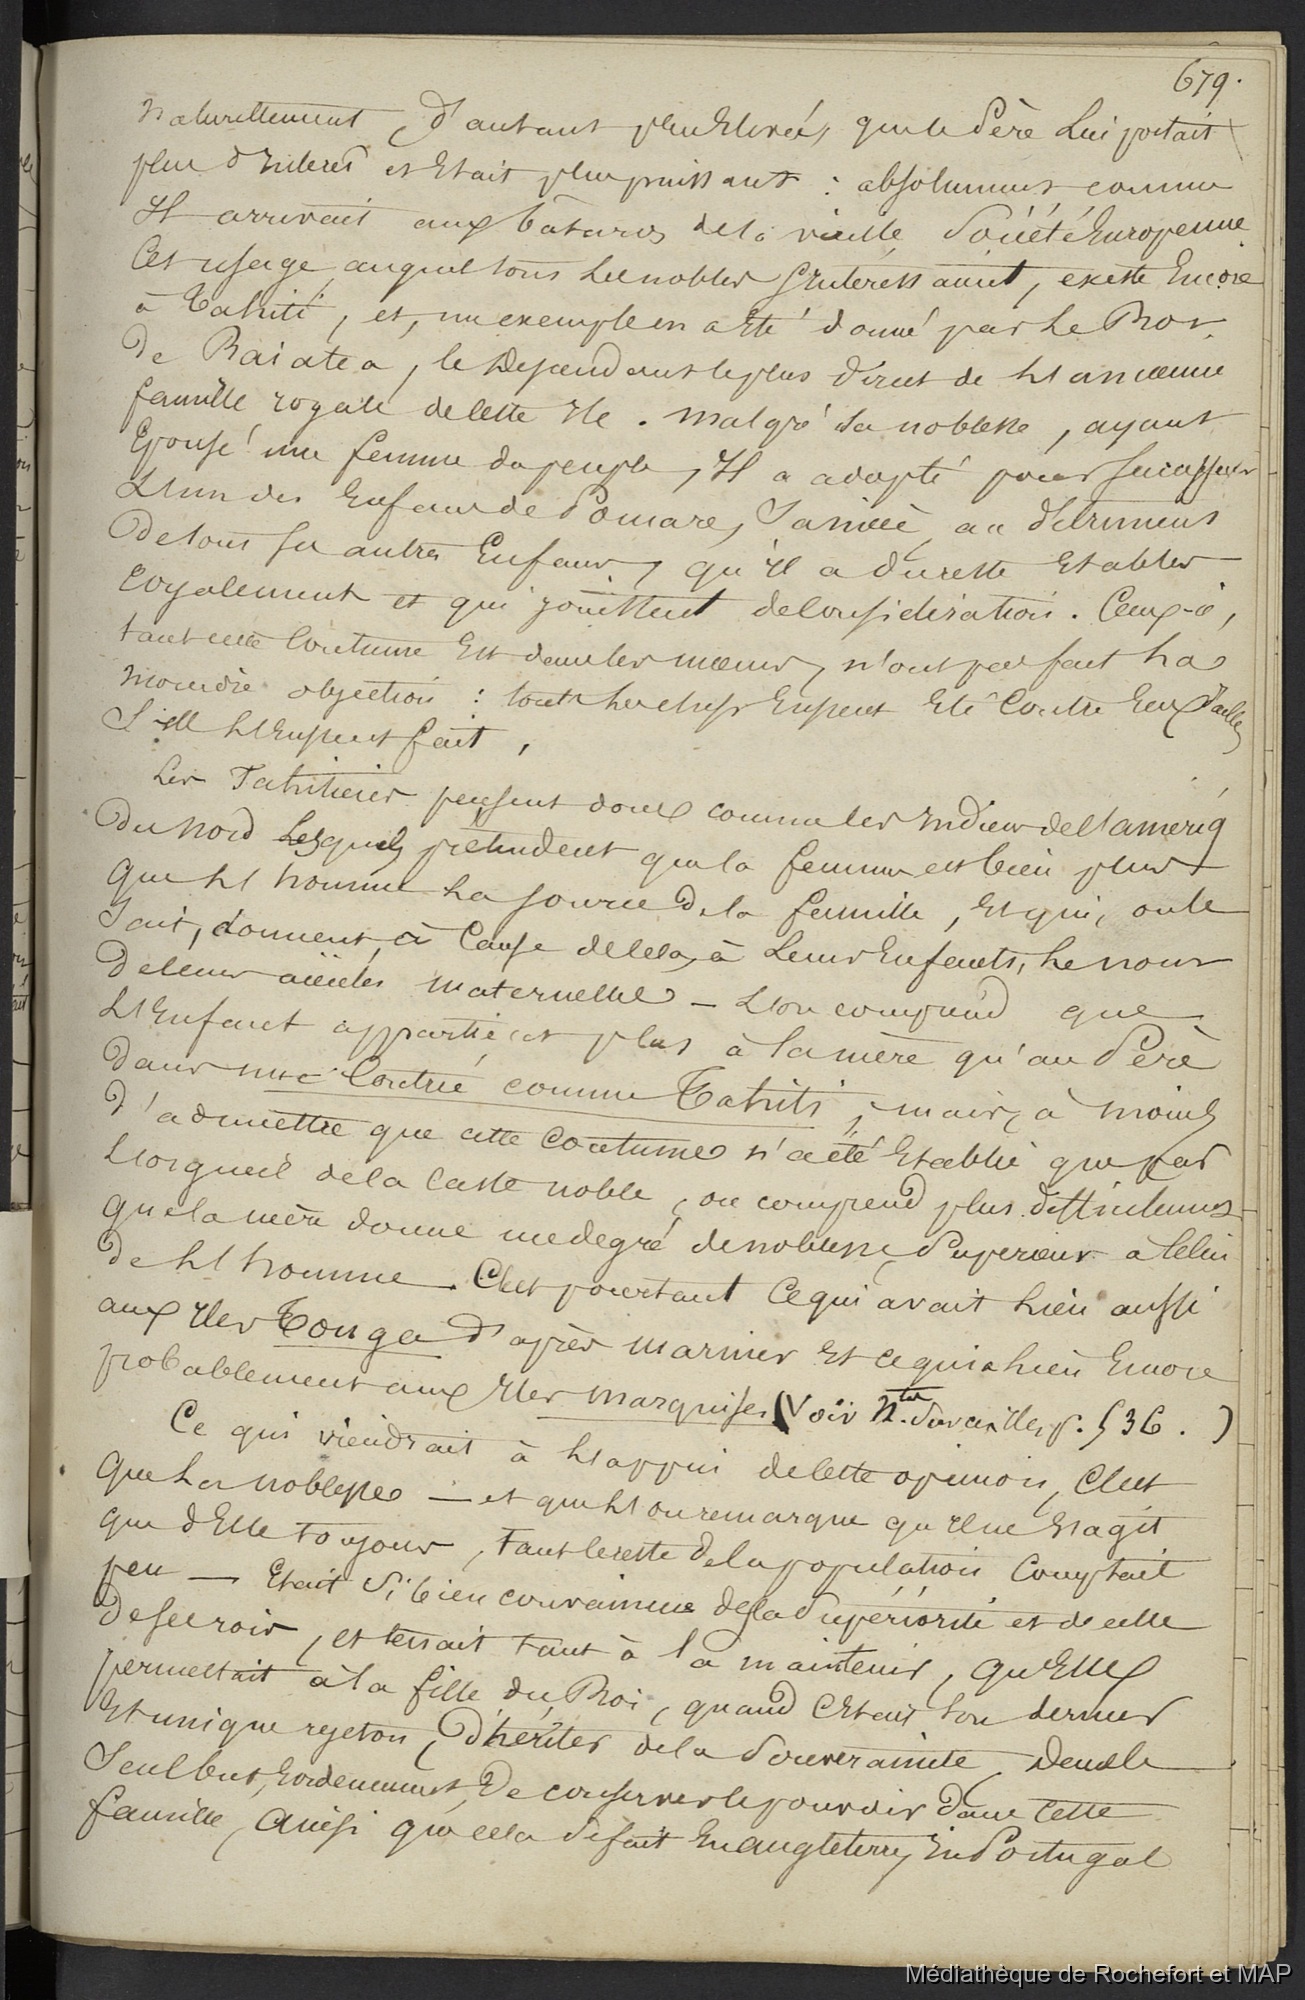 679.
naturellement, d'autant plus Elevées, que le Père Lui portait
plus d'Interet et Etait plus puissant : absolument comme
Il arrivait aux bâtards de la vieille Société Européenne.
Cet usage, auquel tous Les nobles s'Interessaient, existe Encore
à Tahiti, et, un exemple en a Eté donné par Le Roi
de Raiatea, le descendant le plus direct de L'ancienne
famille royale de Cette Ile. Malgré Sa noblesse, ayant
Epousé une femme du peuple, Il a adopté pour Successeur
L'un des Enfans de Pomare, Sa nièce, au détriment
De tous ses autres Enfans, qu'Il a du reste Etablis
royalement et qui jouissent de Considération. Ceux-ci,
tant cette Coutume Est dans les mœurs, n'ont pas fait La
Moindre objection : tous Les chefs Eussent Eté Contre Eux d'ailleurs
S'Ils L'Eussent fait.
Les Tahitiens pensent donc comme les Indiens de L'ameriq
Du Nord Lesquels prétendent que la femme est bien plus
Que L'homme La source de la famille, Et qui, on le
Sait, donnent, à Cause de Cela, à Leurs Enfants, Le nom
De leurs aïeules maternelles — L'on comprend que
L'Enfant appartient plus à la mère qu'au Père
Dans une Contrée comme Tahiti; mais, à moins
D'admettre que cette Coutume n'a été Etablie que par
L'orgueil de la Caste noble, on comprend plus difficilement
Que la mère donne un degré de noblesse Supérieur à Celui
De L'homme. C'est pourtant Ce qui avait Lieu aussi
aux Iles Tonga d'après Mariner Et ce qui a Lieu Encore
probablement aux Iles Marquises (Voir p. 536.)
Ce qui viendrait à L'appui de Cette opinion, C'est
Que La noblesse — et que L'on remarque qu'Il ne S'agit
Que d'Elle toujours, tant le reste de la population Comptait
peu — Etait Si bien convaincue de Sa Supériorité et de celle
De ses rois, et tenait tant à la maintenir, qu'Elle
permettait à la fille du Roi, quand C'Etait Son dernier
Et unique rejeton, d'hériter de la Souveraineté, Dans le
Seul but, Evidemment, De conserver le pouvoir dans Cette
famille, Ainsi que cela Se fait En Angleterre, En Portugal
Médiathèque de Rochefort et MAP